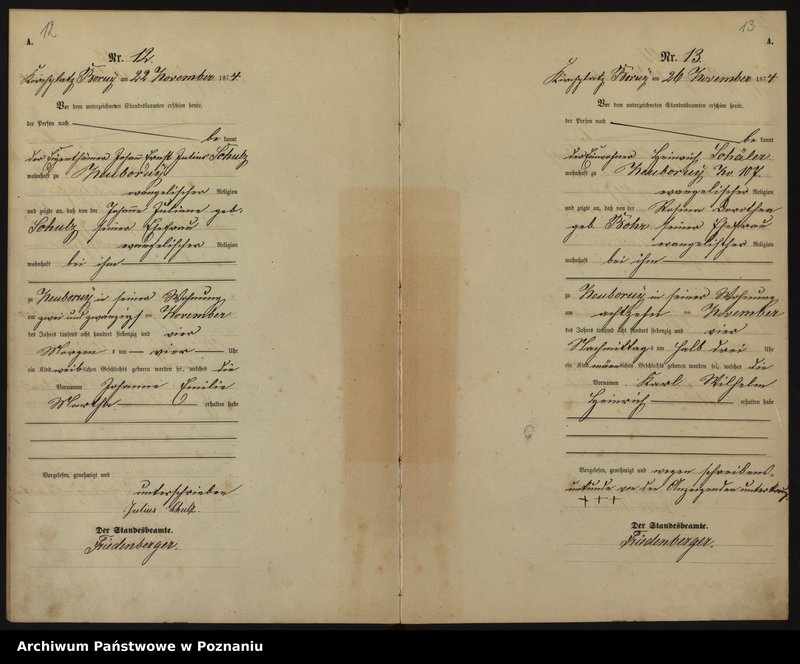 12
A.
Nr. 12.
Kirchplatz Boruy am 22 November 1874
Vor dem unterzeichneten Standesbeamten erschien heute,
der Person nach
be kannt
der Eigenthümer Johann Ernst Julius Schulz
wohnhaft zu Neuboruy
evangelischer Religion
und zeigte an, daß von der Johanne Juliane geb.
Schulz seiner Ehefrau
evangelischer Religion
wohnhaft bei ihm
zu Neuboruy in seiner Wohnung
am zwei und zwanzigsten November
des Jahres tausend acht hundert siebenzig und vier
Morgens um vier Uhr
ein Kind weiblichen Geschlechts geboren worden sei, welches die
Vornamen Johanne Emilie
Martha erhalten habe
Vorgelesen, genehmigt und
unterschrieben
Julius Schulz
Der Standesbeamte.
Friedenberger.
13
A.
Nr. 13.
Kirchplatz Boruy am 26 November 1874
Vor dem unterzeichneten Standesbeamten erschien heute,
der Person nach
be kannt
der Einwohner Heinrich Schäler
wohnhaft zu Neuboruy No. 107.
evangelischer Religion
und zeigte an, daß von der Rosina Dorothea
geb. Bohr seiner Ehefrau
evangelischer Religion
wohnhaft bei ihm
zu Neuboruy in seiner Wohnung
am achtzehn ten November
des Jahres tausend acht hundert siebenzig und vier
Nachmittags um halb drei Uhr
ein Kind männlichen Geschlechts geboren worden sei, welches die
Vornamen Karl Wilhelm
Heinrich erhalten habe
Vorgelesen, genehmigt und wegen Schreibens-
unkunde von dem Anzeigenden unterkreuzt
+++
Der Standesbeamte.
Friedenberger.
Archiwum Państwowe w Poznaniu